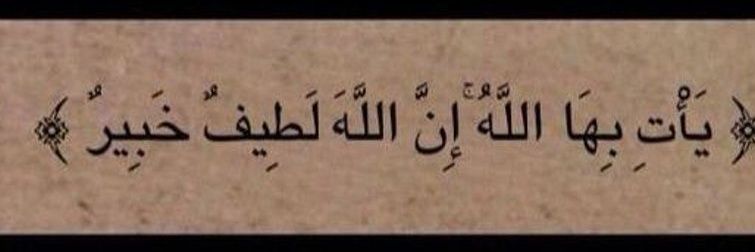 ﴿ يَأْتِ بِهَا اللَّهُ ۚ إِنَّ اللَّهَ لَطِيفٌ خَبِيرٌ ﴾